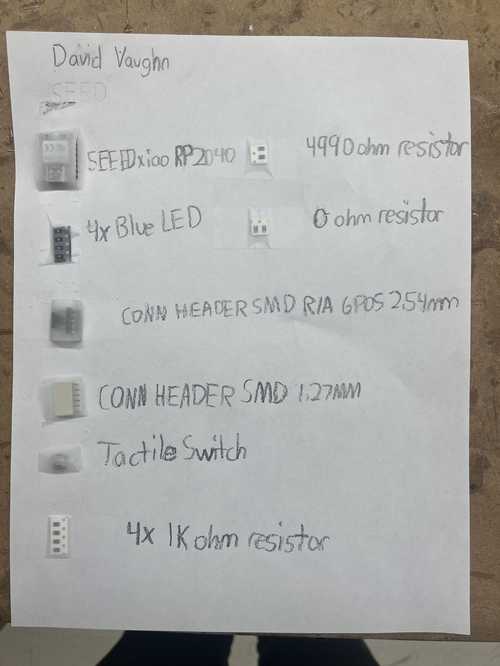 David Vaughn
SEED
SEEEDxiao RP2040
4990 ohm resistor
4x Blue LED
0 ohm resistor
CONN HEADER SMD R/A 6POS 2.54mm
CONN HEADER SMD 1.27MM
Tactile Switch
4x 1K ohm resistor